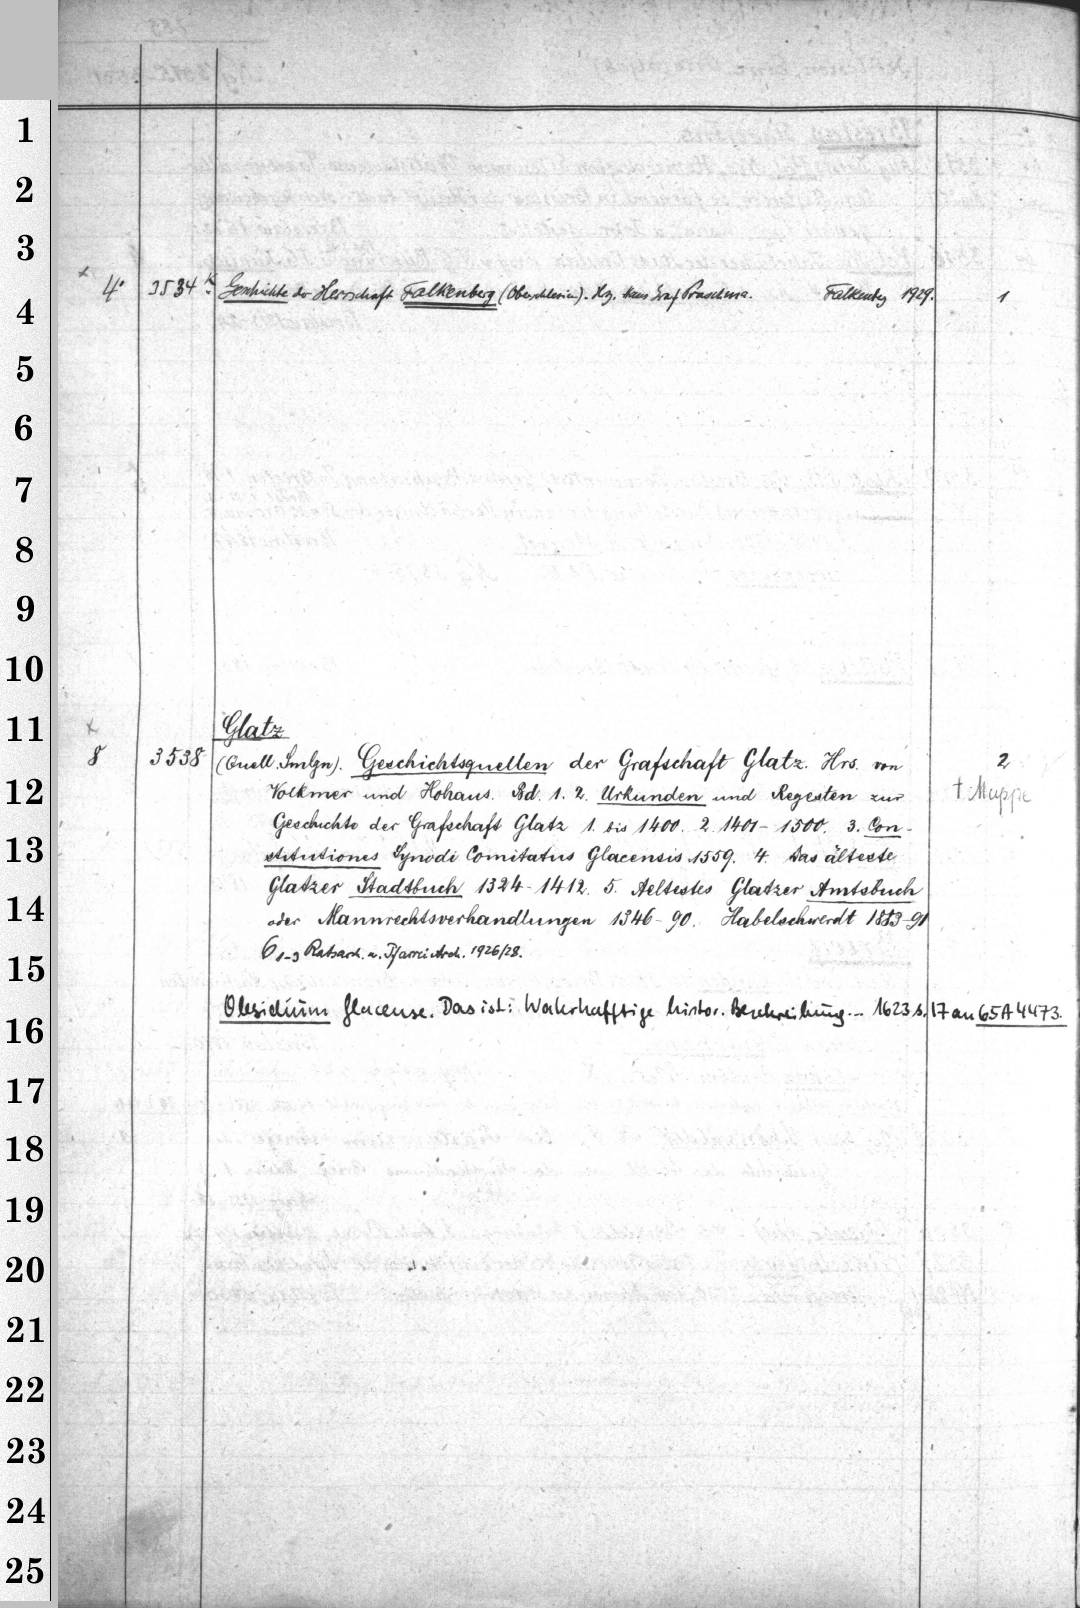 1
2
3
4
x 4° 3534 k Geschichte der Herrschaft Falkenberg (Oberschlesien). Hrg. Hans Graf Praschma. Falkenbg 1929. 1
5
6
7
8
9
10
11
Glatz
x 8 3538 (Quell. Smlgn). Geschichtsquellen der Grafschaft Glatz. Hrs. von 2
12
Volkmer und Hohaus. Bd. 1. 2. Urkunden und Regesten zur † Mappe
Geschichte der Grafschaft Glatz 1. bis 1400. 2. 1401-1500. 3. Con-
13
stitutiones Synodi Comitatus Glacensis 1559. 4. Das älteste
Glatzer Stadtbuch 1324-1412. 5. Aeltestes Glatzer Amtsbuch
14
oder Mannrechtsverhandlungen 1346-90. Habelschwerdt 1883-91
6 1-3 Ratsarch. u. Pfarrei Arch. 1926/28.
15
Obsidium Glacense. Das ist: Wahrhafftige histor. Beschreibung... 1623 s. 17 an 65A4473.
16
17
18
19
20
21
22
23
24
25